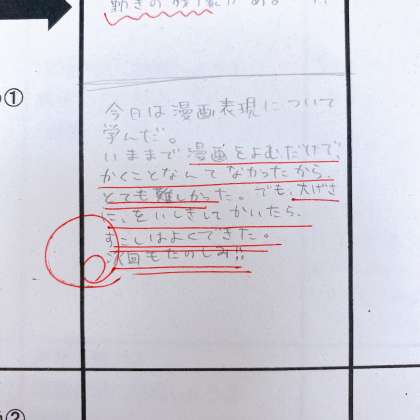 ①
今日は漫画表現について
学んだ。
いままで漫画をよむだけで、
かくことなんてなかったから、
とても難しかった。でも、大げさ
に、をいしきしてかいたら、
すこしはよくできた。
次回もたのしみ!!
②